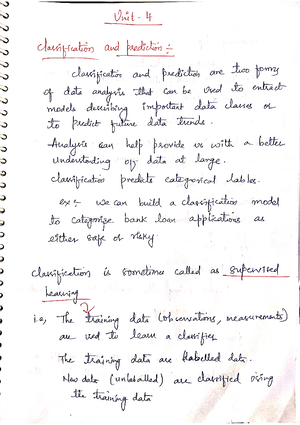 Unit - 4
classification and prediction :-
classification and prediction are two forms
of data analysis that can be used to extract
models describing important data classes or
to predict future data trends.
Analysis can help provide us with a better
understanding of data at large.
classification predicts categorical lables.
ex :- we can build a classification model
to categorize bank loan applications as
either safe or risky.
classification is sometimes called as supervised
learning
i.e, The training data (observations, measurements)
are used to learn a classifier
The training data are labelled data.
New data (unlabelled) are classified using
the training data